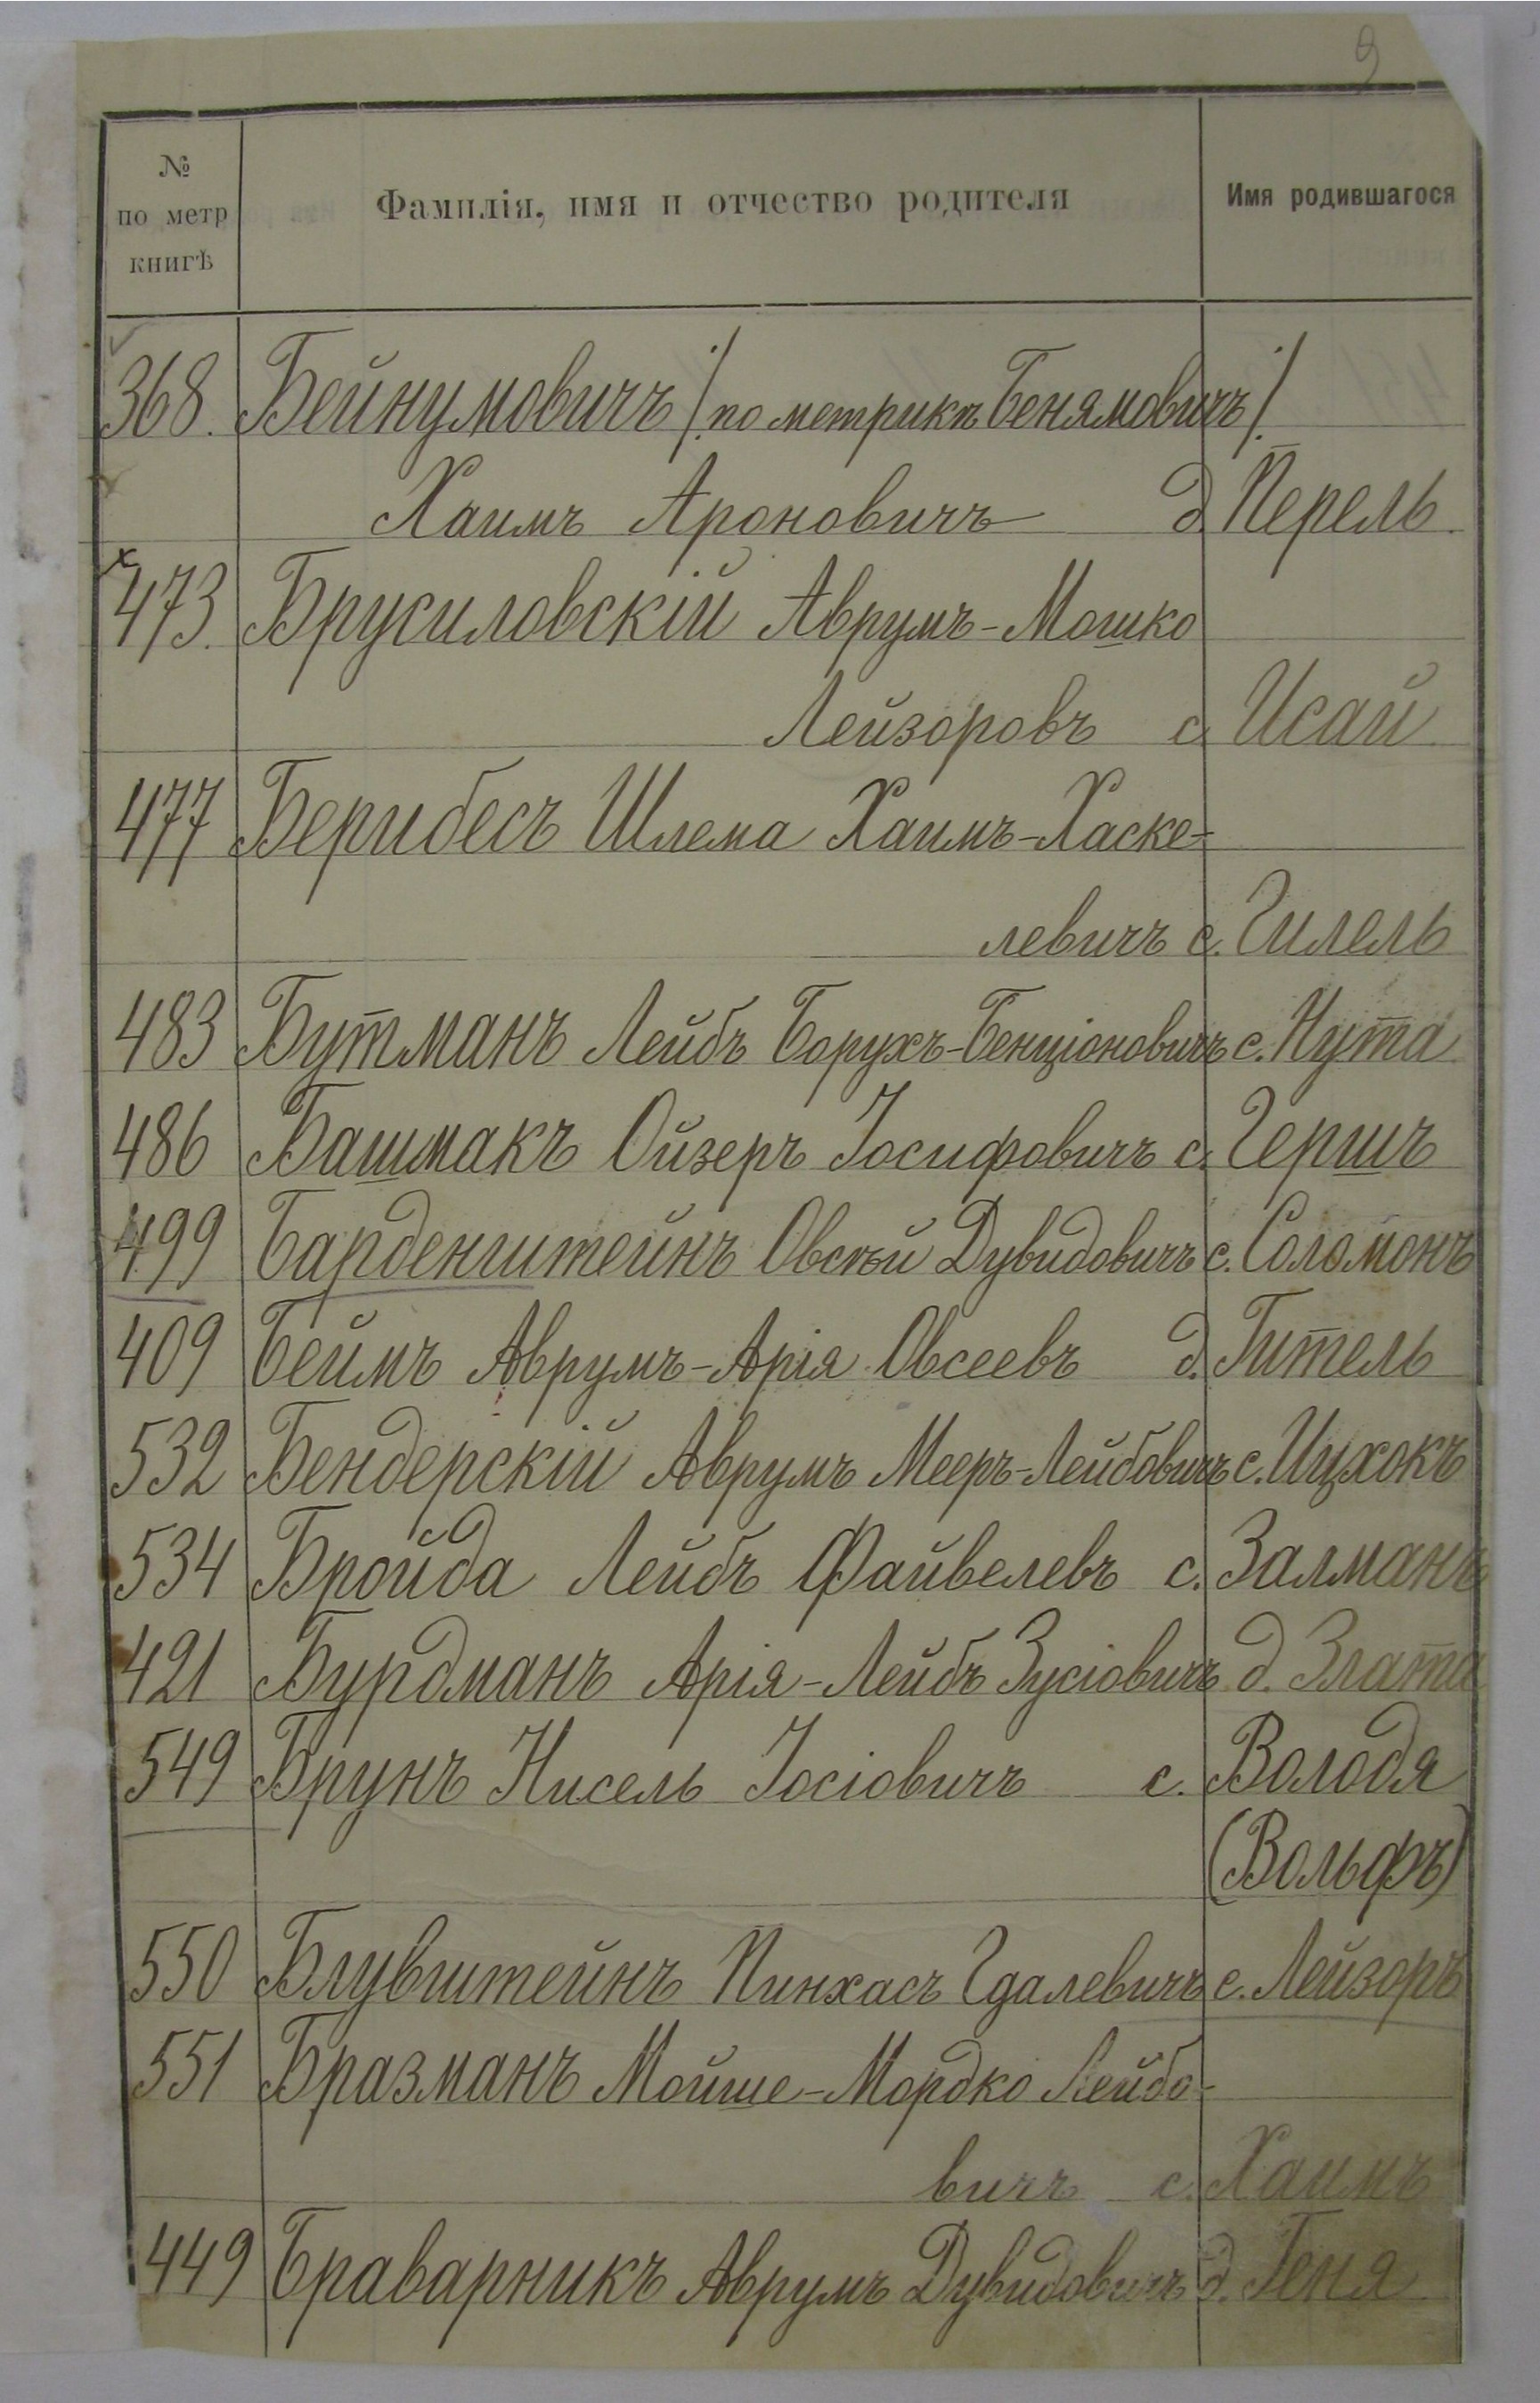 9
№ по метр книгѣ Фамилія, имя и отчество родителя Имя родившагося
368. Бейнумовичъ /.по метрикѣ Бенямовичъ./
Хаимъ Ароновичъ д. Перель
473. Брусиловскій Аврумъ-Мошко
Лейзоровъ с. Исай
477 Берибесъ Шлема Хаимъ-Хаске-
левичъ с. Гилель
483 Бутманъ Лейбъ Борухъ-Бенціоновичъ с. Нута
486 Башмакъ Ойзеръ Іосифовичъ с. Гершъ
499 Барденштейнъ Овсѣй Дувидовичъ с. Соломонъ
409 Беймъ Аврумъ-Арія Овсеевъ д. Гитель
532 Бендерскій Аврумъ Мееръ-Лейбовичъ с. Ицхокъ
534 Бройда Лейбъ Файвелевъ с. Залманъ
421 Бурдманъ Арія-Лейбъ Зусіовичъ д. Злата
549 Брунъ Нисель Іосіовичъ с. Володя
(Вольфъ)
550 Блувштейнъ Пинхасъ Гдалевичъ с. Лейзоръ
551 Бразманъ Мойше-Мордко Лейбо-
вичъ с. Хаимъ
449 Браварникъ Аврумъ Дувидовичъ д. Геня